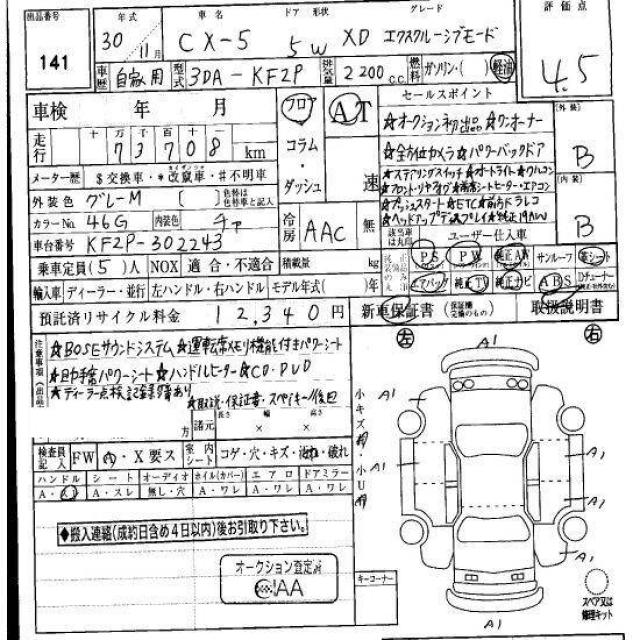 出品番号 年式 車名 ドア 形状 グレード 評価点
141 30 年 11月 CX-5 5W XD エクスクルーシブモード 4.5
車歴 自家用 型式 3DA-KF2P 排気量 2200 c.c. 燃料 ガソリン・( ) 軽油
車検 年 月 フロア AT セールスポイント 外装
走行 十 万 千 百 十
73708 km コラム・ダッシュ 速
★オークション初出品 ★ワンオーナー
★全方位カメラ★パワーバックドア B
メーター歴 $交換車・*改竄車・#不明車
★ステアリングスイッチ★オートライト★
内装
外装色 グレーM [ ] 色替は色替車と記入
★プッシュスタート★ETC★前方ドラレコ B
カラーNo. 46G 内装色 チャ 冷房 AAC 無
★ヘッドアップディスプレイ★純正19AW
車台番号 KF2P-302243 該当車は丸印 ユーザー仕入車
乗車定員(5)人 NOX 適合・不適合 積載量 kg
PS PW 純正AW サンルーフ 革シート
輸入車 ディーラー・並行 左ハンドル・右ハンドル モデル年式( )年
エアバッグ 純正TV 純正ナビ ABS Dチューナー
預託済リサイクル料金 12,340円 新車保証書 (保証欄記入のもの) 取扱説明書
注意事項(出品)
★BOSEサウンドシステム★運転席メモリ機能付きパワーシート
★助手席パワーシート★ハンドルヒーター★CD・DVD
★ディーラー点検記録簿あり
★取説・保証書・スペアキー/後日
方 諸元 長さ 幅 高さ
× ×
検査員記入 FW A・X要ス 室内シート コゲ・穴・キズ・汚れ・破れ
ハンドル シート オーディオ ホイル(カバー) エアロ ドアミラー
A・スレ A・スレ 無し・穴 A・ワレ A・ワレ A・ワレ
◆搬入連絡(成約日含め4日以内)後お引取り下さい。
オークション査定済
CIAA
キーコーナー
左 A1 右
小キズ有・小U有
A1
A1
A1
A1
A1
A1
A1
スペア又は修理キット